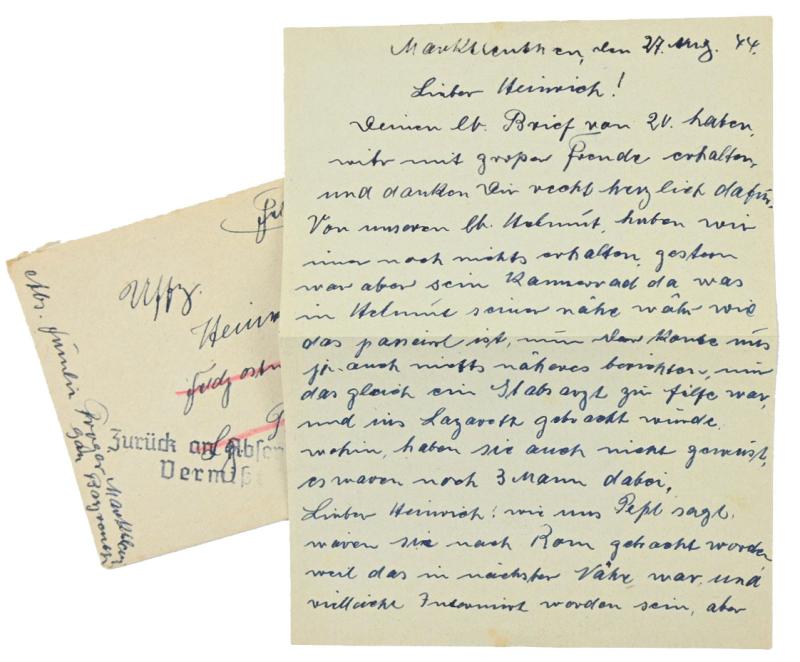 Marktleuthen, den 27. Aug. 44.
Lieber Heinrich!
Deinen lb. Brief von 20. haben,
wihr mit großer Freude erhalten,
und danken Dir recht herzlich dafür.
Von unseren lb. Helmut, haben wir
imer noch nichts erhalten, gestern
war aber sein Kammerrad da was
in Helmut seiner nähe wahr wie
das passeirt ist, nun der konte uns
ja auch nichts näheres berichten, nur
das gleich ein Stabsarzt zu hilfe war,
und ins Lazareth gebracht wurde.
wohin, haben sie auch nicht gewust,
es waren noch 3 Mann dabei,
Lieber Heinrich! wie uns Pepl sagt,
wären sie nach Rom gebracht worden
weil das in nächster Nähe war, und
vielleicht Intermirt worden sein, aber
Uffz.
Heinr
Zurück an Absen
Vermißt
Abs. Familie Troger Marktleu
Gau Bayreuth